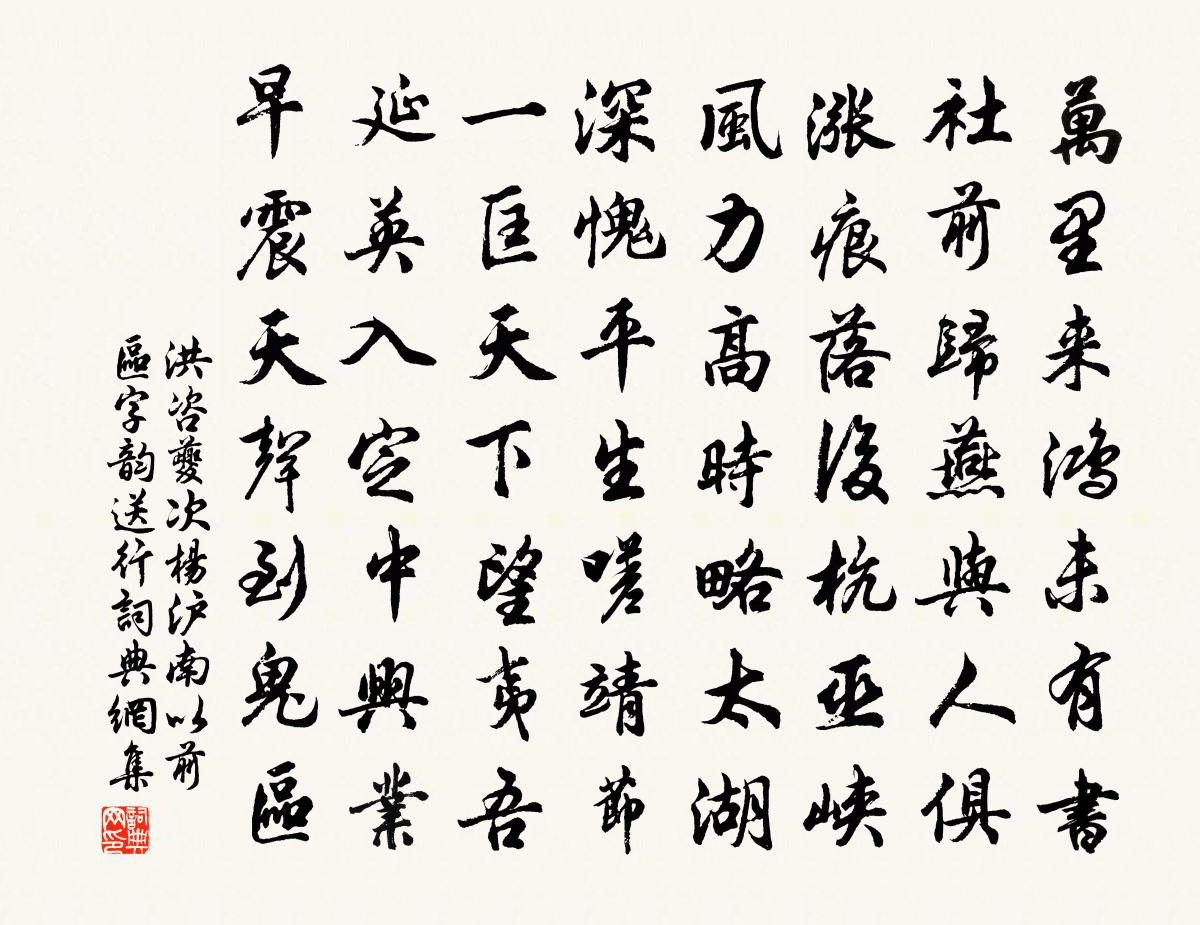 萬里来鴻未有書
社前歸燕與人俱
漲痕落後杭巫峽
風力高時略太湖
深愧平生嗟靖節
一匡天下望夷吾
延英入定中興業
早震天聲到鬼區
洪咨夔次楊沪南以前
區字韵送行詞典網集
詞典网印